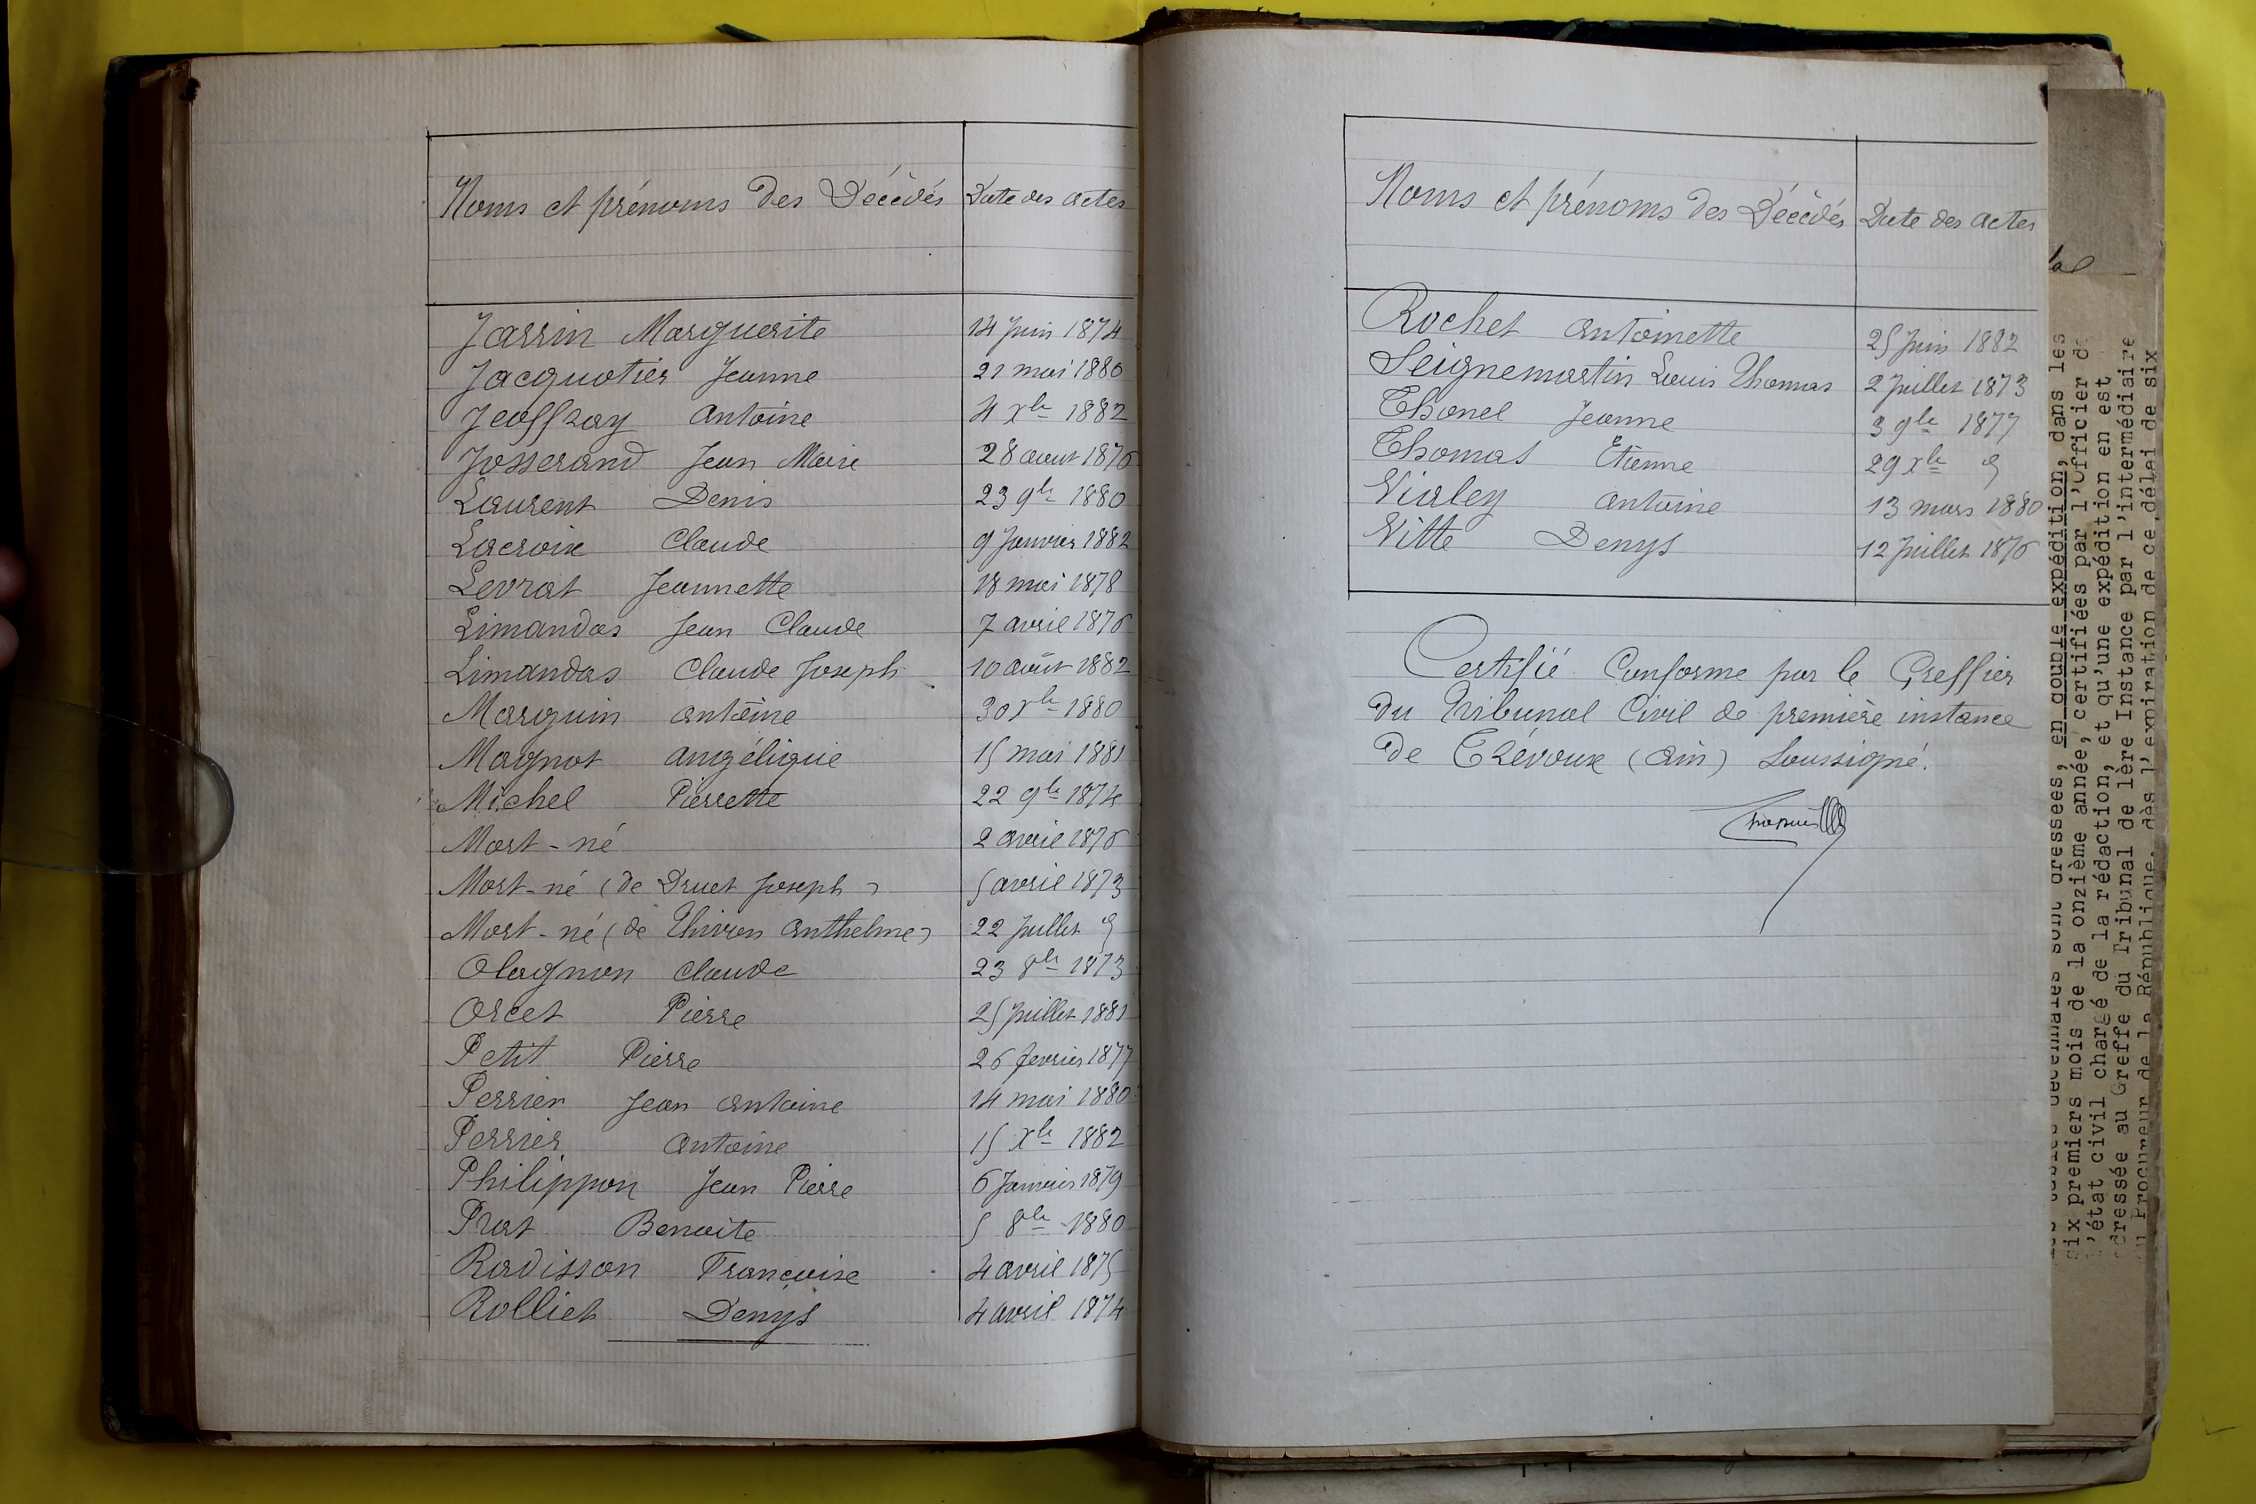 Noms et prénoms des Décédés Date des actes
Jarrin Marguerite 14 Juin 1874
Jacquotier Jeanne 21 mai 1880
Jeoffray Antoine 4 Xbre 1882
Josserand Jean Marie 28 aout 1876
Laurent Denis 23 9bre 1880
Lacroix Claude 9 Janvier 1882
Levrat Jeannette 18 mai 1878
Limandas Jean Claude 7 avril 1876
Limandas Claude Joseph 10 août 1882
Marguin Antoine 30 Xbre 1880
Magnot Angélique 15 mai 1881
Michel Pierrette 22 9bre 1874
Mort-né 2 avril 1876
Mort-né (de Druet Joseph) 5 avril 1873
Mort-né (de Thivon Anthelme) 22 Juillet d
Olagnon Claude 23 8bre 1873
Orcet Pierre 25 Juillet 1881
Petit Pierre 26 fevrier 1877
Perrier Jean Antoine 14 mai 1880
Perrier Antoine 15 Xbre 1882
Philippon Jean Pierre 6 Janvier 1879
Prat Benoite 5 8bre 1880
Radisson Françoise 4 avril 1875
Rolliet Denys 4 avril 1874
Noms et prénoms des Décédés Date des actes
Rochet Antoinette 25 Juin 1882
Seignemartin Louis Thomas 2 Juillet 1873
Thonel Jeanne 3 9bre 1877
Thomas Etienne 29 Xbre d
Vialey Antoine 13 mars 1880
Vitte Denys 12 Juillet 1876
Certifié Conforme par le Greffier
du Tribunal Civil de première instance
de Trévoux (Ain) Soussigné.
sont dressées, en double expédition, dans les
six premiers mois de la onzième année, certifiées par l'Officier de
l'état civil chargé de la rédaction, et qu'une expédition en est
adressée au Greffe du Tribunal de 1ère Instance par l'intermédiaire
du Procureur de la République, dès l'expiration de ce délai de six